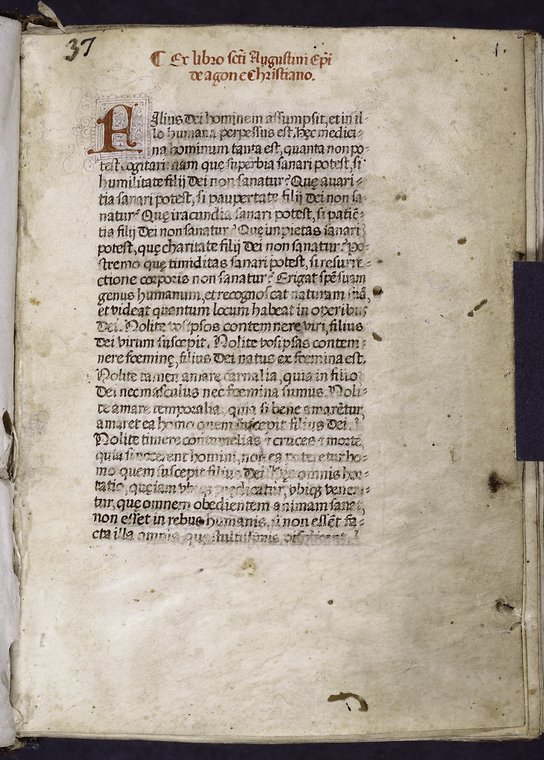 37
1.
☾ Ex libro scti Augustini Epi
de agone Christiano.
Filius Dei hominem assumpsit, et in il-
lo humana perpessus est. Hęc medici-
na hominum tanta est, quanta non po-
test cogitari: nam quę superbia sanari potest, si
humilitate filij Dei non sanatur? Quę auari-
tia sanari potest, si paupertate filij Dei non sa-
natur? Quę iracundia sanari potest, si patiē-
tia filij Dei non sanatur? Quę impietas sanari
potest, quę charitate filij Dei non sanatur? Po-
stremo quę timiditas sanari potest, si resurre-
ctione corporis non sanatur? Erigat spē suam
genus humanum, et recognoscat naturam suā,
et videat quantum locum habeat in operibus
Dei. Nolite vosipsos contemnere viri, filius
Dei virum suscepit. Nolite vosipsas contem-
nere foeminę, filius Dei natus ex foemina est.
Nolite tamen amare carnalia, quia in filio
Dei nec masculus nec foemina sumus. Noli-
te amare temporalia, quia si bene amarētur,
amaret ea homo quem suscepit filius Dei.
Nolite timere contumelias et cruces et mortē
quia si nocerent homini, non ea pateretur ho-
mo quem suscepit filius Dei. Hęc omnis hor-
tatio, quę iam vbique prędicatur, vbique venera-
tur, quę omnem obedientem animam sanat,
non esset in rebus humanis, si non essēt fa-
cta illa omnia, quę stultissimis